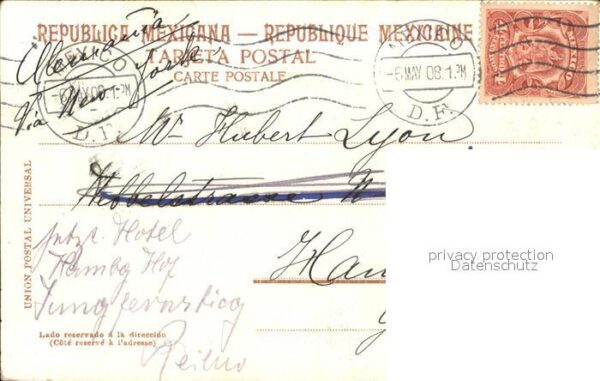 REPUBLICA MEXICANA — REPUBLIQUE MEXICAINE
TARJETA POSTAL
CARTE POSTALE
Alemania
Via New York
MEXICO
-6 MAY 08 1 PM
D.F.
MEXICO
-6 MAY 08 1 PM
D.F.
Mr Hubert Lyon
Jetzt. Hotel
Hambg Hof
Jungfernstieg
Han
UNION POSTAL UNIVERSAL
Lado reservado á la dirección
(Côté reservé à l'adresse)
privacy protection
Datenschutz